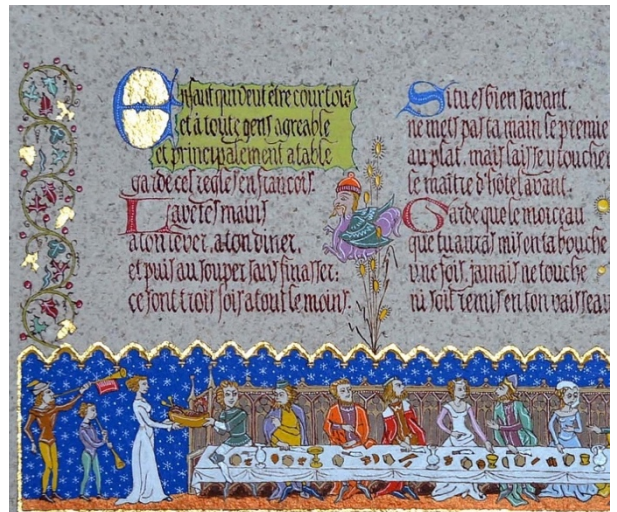 Enfant qui veut être courtois
et à toute gens agreable
et principalement a table
garde ces regles en francois.
Lave tes mains
a ton lever, a ton diner,
et puis au souper sans finasser:
ce sont trois fois a tout le moins.
Si tu es bien savant.
ne mets pas ta main le premie
au plat, mais laisse y touche
le maître d'hôtel avant.
Garde que le morceau
que tu auras mis en ta bouche
une fois, jamais ne touche
ni soit remis en ton vaisseau